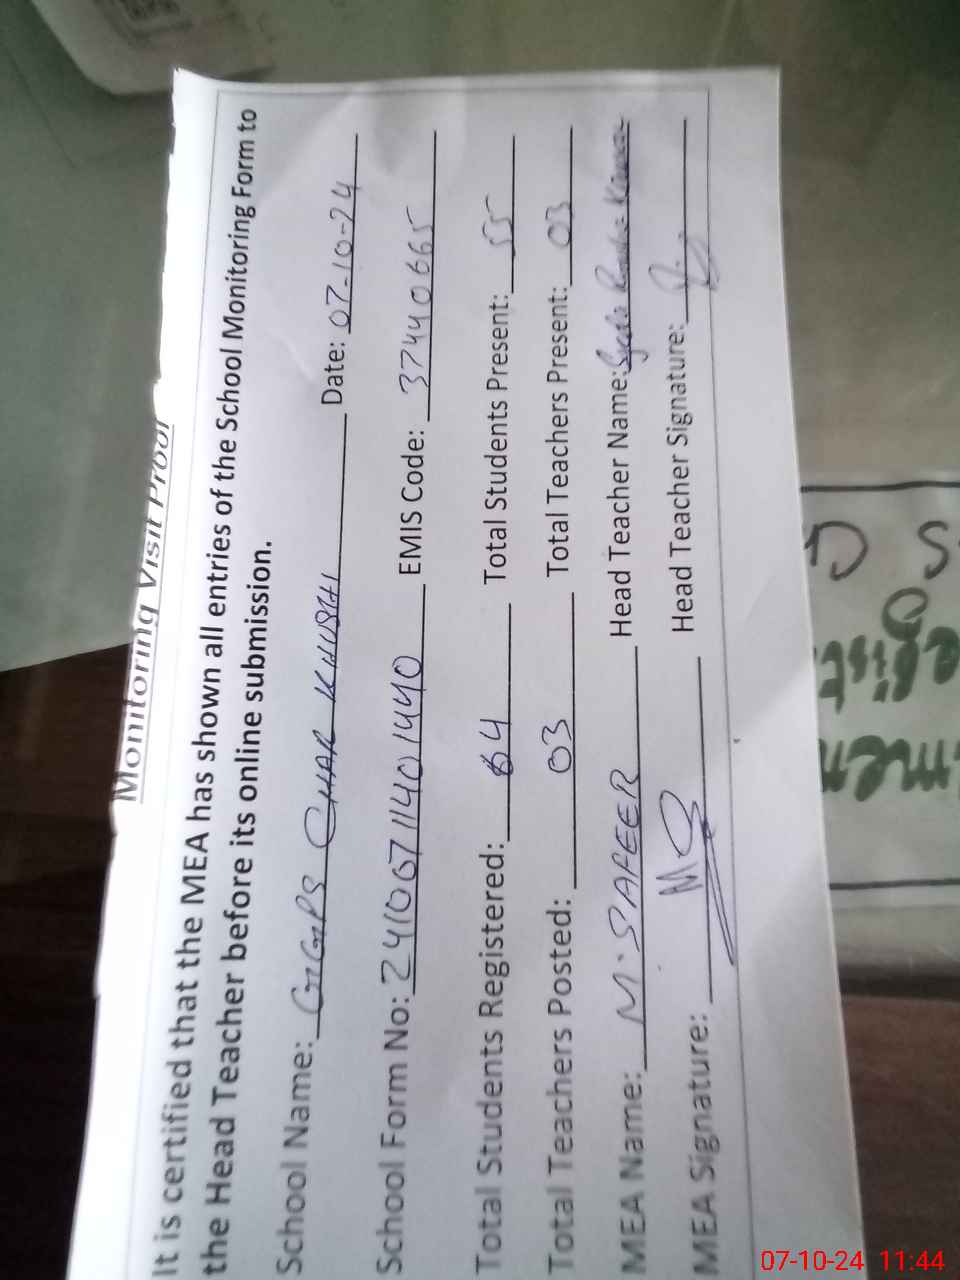 Monitoring Visit Proof
It is certified that the MEA has shown all entries of the School Monitoring Form to
the Head Teacher before its online submission.
School Name: GGPS CHAR KHUSHI Date: 07-10-24
School Form No: 241006711401440 EMIS Code: 37440665
Total Students Registered: 64 Total Students Present: 55
Total Teachers Posted: 03 Total Teachers Present: 03
MEA Name: M. SAFEER Head Teacher Name: Syeda
MEA Signature: Head Teacher Signature:
07-10-24 11:44